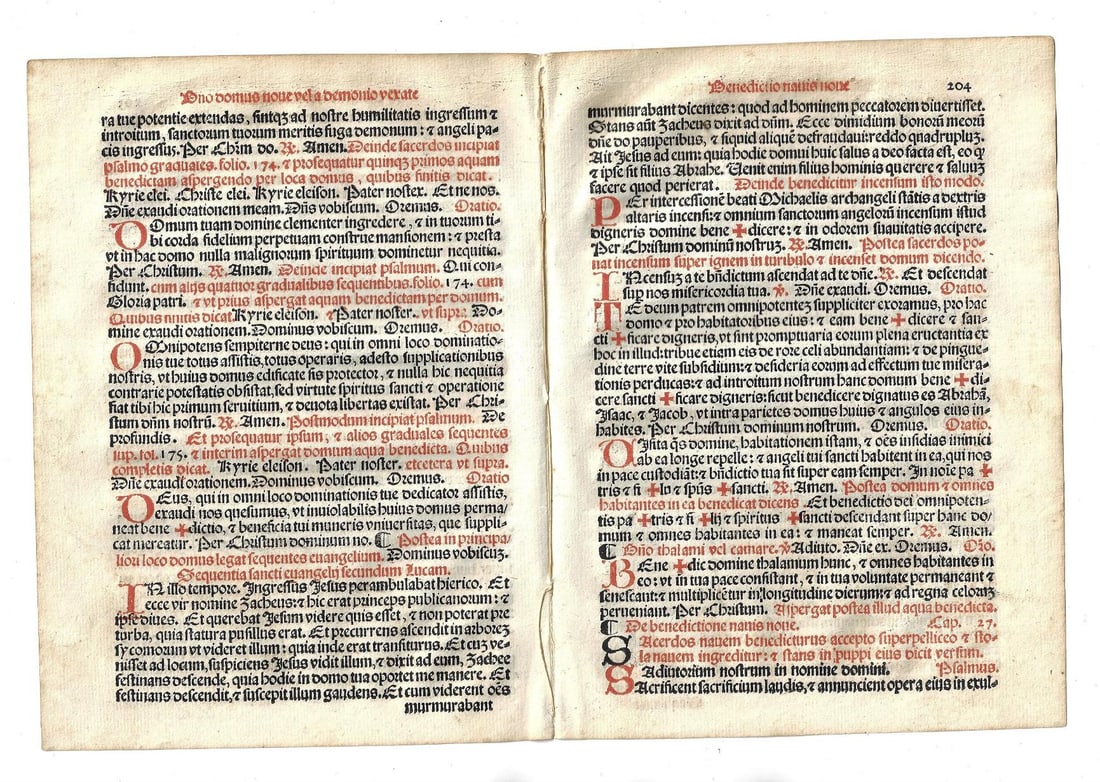 Bño domus noue vel a demonio vexate
ra tue potentie extendas, sintqꝫ ad nostre humilitatis ingressum ⁊
introitum, sanctorum tuorum meritis fuga demonum: ⁊ angeli pa-
cis ingressus. Per Chꝛm do. ℟. Amen. Deinde sacerdos incipiat
psalmo graduales. folio. 174. ⁊ prosequatur quinqꝫ primos aquam
benedictam aspergendo per loca domus, quibus finitis dicat.
Kyrie elei. Christe elei. Kyrie eleison. Pater noster. Et ne nos.
Dñe exaudi orationem meam. Dñs vobiscum. Oremus. Oratio.
DOmum tuam domine clementer ingredere, ⁊ in tuorum ti-
bi corda fidelium perpetuam construe mansionem: ⁊ presta
vt in hac domo nulla malignorum spirituum dominetur nequitia.
Per Christum. ℟. Amen. Deinde incipiat psalmum. Qui con-
fidunt. cum alijs quatuor gradualibus sequentibus. folio. 174. cum
Gloria patri. ⁊ vt prius aspergat aquam benedictam per domum.
Quibus finitis dicat Kyrie eleison. Pater noster. vt supra. Do-
mine exaudi orationem. Dominus vobiscum. Oremus. Oratio.
OMnipotens sempiterne deus: qui in omni loco dominatio-
nis tue totus assistis, totus operaris, adesto supplicationibus
nostris, vt huius domus edificate sis protector, ⁊ nulla hic nequitia
contrarie potestatis obsistat, sed virtute spiritus sancti ⁊ operatione
fiat tibi hic primum seruitium, ⁊ deuota libertas existat. Per Chri-
stum dñm nostrū. ℟. Amen. Postmodum incipiat psalmum. De
profundis. Et prosequatur ipsum, ⁊ alios graduales sequentes
sup. fol. 175. ⁊ interim aspergat domum aqua benedicta. Quibus
completis dicat. Kyrie eleison. Pater noster. etcetera vt supra.
Dñe exaudi orationem. Dominus vobiscum. Oremus. Oratio
DEus, qui in omni loco dominationis tue dedicator assistis,
exaudi nos quesumus, vt inuiolabilis huius domus perma/
neat bene ✚dictio, ⁊ beneficia tui muneris vniuersitas, que suppli-
cat mereatur. Per Christum dominum no. ¶ Postea in principa-
liori loco domus legat sequentes euangelium. Dominus vobiscuꝫ.
Sequentia sancti euangelij secundum Lucam.
IN illo tempore. Ingressus Jesus perambulabat hierico. Et
ecce vir nomine Zacheus: ⁊ hic erat princeps publicanorum: ⁊
ipse diues. Et querebat Jesum videre quis esset, ⁊ non poterat pre
turba, quia statura pusillus erat. Et precurrens ascendit in arboreꝫ
sycomorum vt videret illum: quia inde erat transiturus. Et cuꝫ ve-
nisset ad locum, suspiciens Jesus vidit illum, ⁊ dixit ad eum, Zachee
festinans descende, quia hodie in domo tua oportet me manere. Et
festinans descendit, ⁊ suscepit illum gaudens. Et cum viderent oēs
murmurabant
Benedictio nauis noue 204
murmurabant dicentes: quod ad hominem peccatorem diuertisset.
Stans aūt Zacheus dixit ad dñm. Ecce dimidium bonorū meorū
dñe do pauperibus, ⁊ siquid aliquē defraudaui reddo quadrupluꝫ.
Ait Jesus ad eum: quia hodie domui huic salus a deo facta est, eo ꝙ
⁊ ipse sit filius Abrahe. Uenit enim filius hominis querere ⁊ saluuꝫ
facere quod perierat. Deinde benedicitur incensum isto modo.
PEr intercessionē beati Michaelis archangeli stātis a dextris
altaris incensi: ⁊ omnium sanctorum angelorū incensum istud
digneris domine bene ✚dicere: ⁊ in odorem suauitatis accipere.
Per Christum dominū nostruꝫ. ℟. Amen. Postea sacerdos po-
nat incensum super ignem in turibulo ⁊ incenset domum dicendo.
INcensuꝫ a te bñdictum ascendat ad te dñe. ℟. Et descendat
sup nos misericordia tua. ℣. Dñe exaudi. Oremus. Oratio.
TE deum patrem omnipotenteꝫ suppliciter exoramus, pro hac
domo ⁊ pro habitatoribus eius: ⁊ eam bene ✚dicere ⁊ san-
cti ✚ficare digneris, vt sint promptuaria eorum plena eructantia ex
hoc in illud: tribue etiam eis de rore celi abundantiam: ⁊ de pingue-
dine terre vite subsidium: ⁊ desideria eorum ad effectum tue misera-
tionis perducas: ⁊ ad introitum nostrum hanc domum bene ✚di-
cere sancti ✚ficare digneris: sicut benedicere dignatus es Abrahā,
Isaac, ⁊ Jacob, vt intra parietes domus huius ⁊ angulos eius in-
habites. Per Christum dominum nostrum. Oremus. Oratio.
UIsita q̄s domine, habitationem istam, ⁊ oēs insidias inimici
ab ea longe repelle: ⁊ angeli tui sancti habitent in ea, qui nos
in pace custodiāt: ⁊ bñdictio tua sit super eam semper. In noīe pa ✚
tris ⁊ fi ✚lij ⁊ spūs ✚sancti. ℟. Amen. Postea domum ⁊ omnes
habitantes in ea benedicat dicens. Et benedictio dei omnipoten-
tis pa ✚tris ⁊ fi ✚lij ⁊ spiritus ✚sancti descendant super hanc do/
mum ⁊ omnes habitantes in ea: ⁊ maneat semper. ℟. Amen.
¶ Bño thalami vel camare. ℣. Adiuto. Dñe ex. Oremus. Oĩo.
BEne ✚dic domine thalamum hunc, ⁊ omnes habitantes in
eo: vt in tua pace consistant, ⁊ in tua voluntate permaneant ⁊
senescant: ⁊ multiplicētur in longitudine dierum: ⁊ ad regna celoruꝫ
perueniant. Per Christum. Aspergat postea illud aqua benedicta.
¶ De benedictione nauis noue. Cap. 27.
SAcerdos nauem benedicturus accepto superpelliceo ⁊ sto-
la nauem ingreditur: ⁊ stans in puppi eius dicit versum.
Adiutorium nostrum in nomine domini. Psalmus.
SAcrificent sacrificium laudis, ⁊ annuncient opera eius in exul-